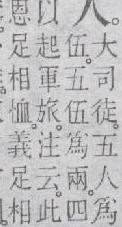 人。
大司徒。五人爲
伍。五伍爲兩。四
以起軍旅。注云。此
恩足相恤。義足相